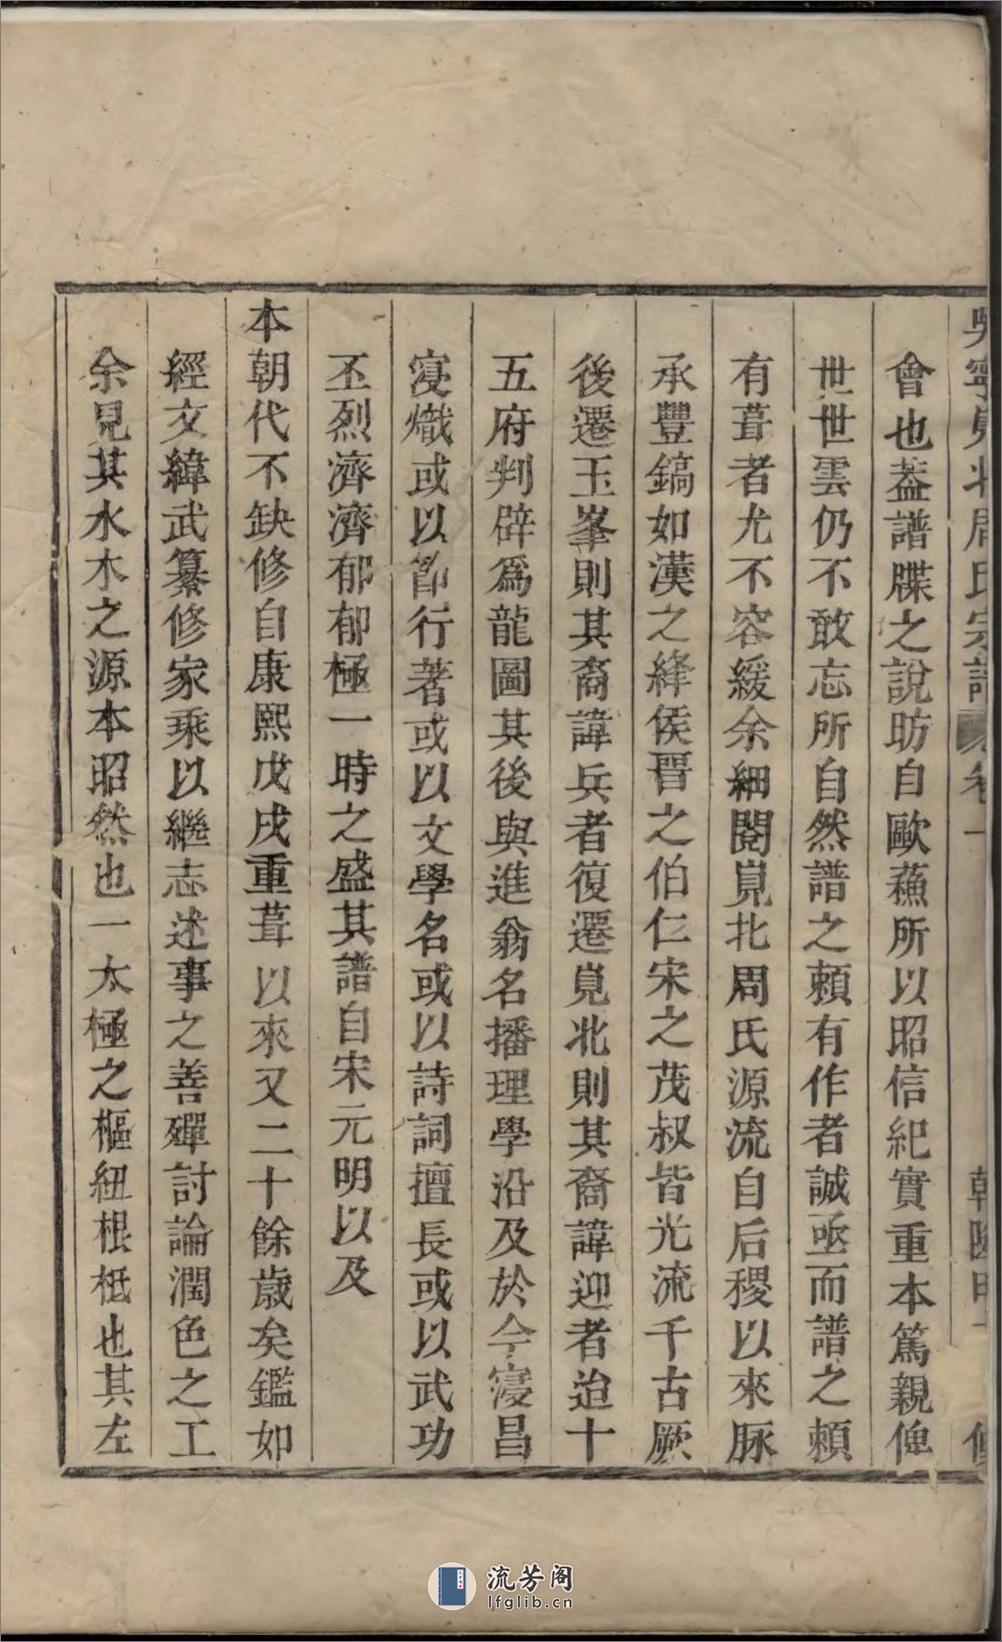 會也葢譜牒之說昉自歐蘓所以昭信紀實重本篤親俾
世世雲仍不敢忘所自然譜之頼有作者誠亟而譜之頼
有葺者尤不容緩余細閱峴北周氏源流自后稷以來脉
承豐鎬如漢之絳侯晋之伯仁宋之茂叔皆光流千古厥
後遷玉峯則其裔諱兵者復遷峴北則其裔諱迎者迨十
五府判辟爲龍圖其後與進翁名播理學沿及於今寖昌
寖熾或以節行著或以文學名或以詩詞擅長或以武功
丕烈濟濟郁郁極一時之盛其譜自宋元明以及
本朝代不缺修自康熙戊戌重葺以來又二十餘歲矣鑑如
經文緯武纂修家乘以繼志述事之善殫討論潤色之工
余見其水木之源本昭然也一太極之樞紐根柢也其左
流芳阁
lfglib.cn